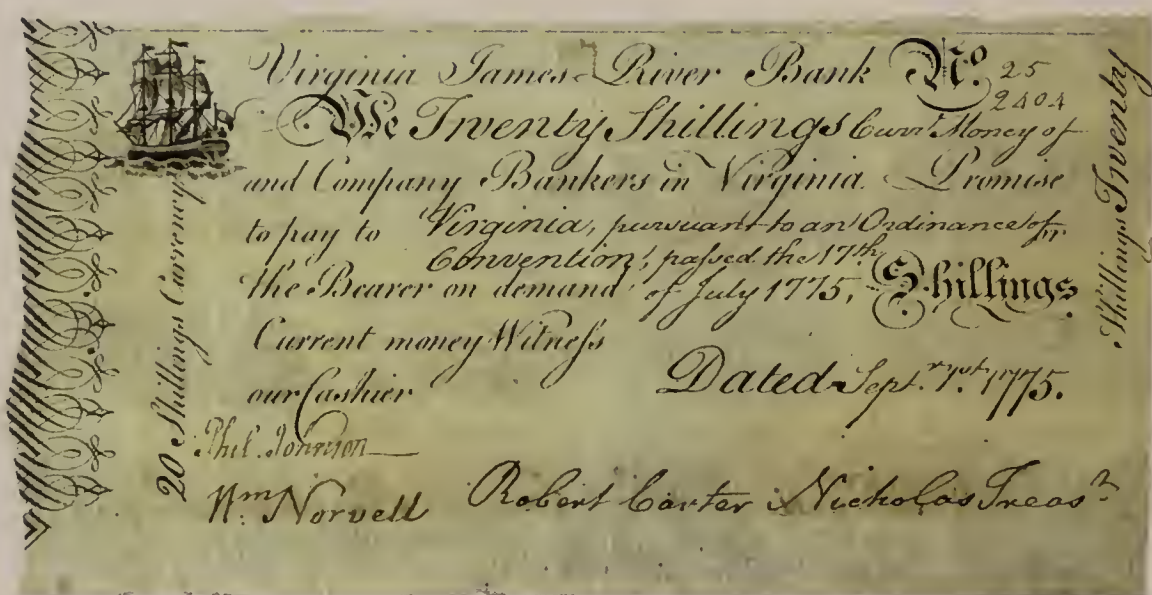 Virginia James River Bank No. 25
2404
We Twenty Shillings Curr.t Money of
and Company Bankers in Virginia Promise
to pay to Virginia, pursuant to an Ordinance of
Convention, passed the 17th
the Bearer on demand of July 1775, Shillings
Current money Witness
our Cashier
Dated Sept.r 1st. 1775.
Phil. Johnson
Wm. Norvell Robert Carter Nicholas Treas.r
20 Shillings Currency
Shillings Twenty